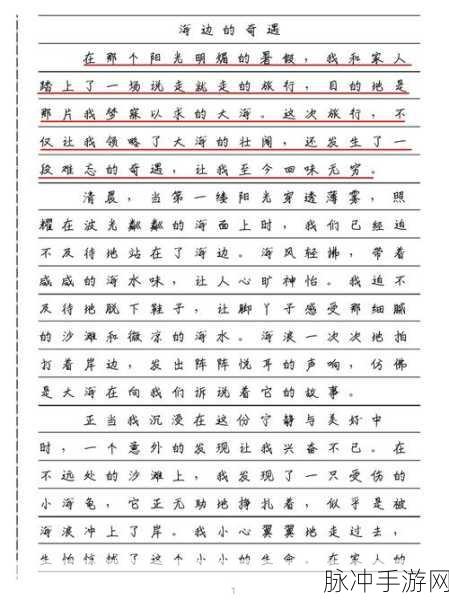 海边的奇遇
在那个阳光明媚的暑假，我和家人
踏上了一场说走就走的旅行，目的地是
那片我梦寐以求的大海。这次旅行，不
仅让我领略了大海的壮阔，还发生了一
段难忘的奇遇，让我至今回味无穷。
清晨，当第一缕阳光穿透薄雾，照
耀在波光粼粼的海面上时，我们已经迫
不及待地站在了海边。海风轻拂，带着
咸咸的海水味，让人心旷神怡。我迫不
及待地脱下鞋子，让脚丫子感受那细腻
的沙滩和微凉的海水。海浪一次次地拍
打着岸边，发出阵阵悦耳的声响，仿佛
是大海在向我们诉说着它的故事。
正当我沉浸在这份宁静与美好中
时，一个意外的发现让我兴奋不已。在
不远处的沙滩上，我发现了一只受伤的
小海龟，它正无助地挣扎着，似乎是被
海浪冲上了岸。我小心翼翼地走过去，
生怕惊扰了这个小小的生命。在家人的
脉冲手游网
1